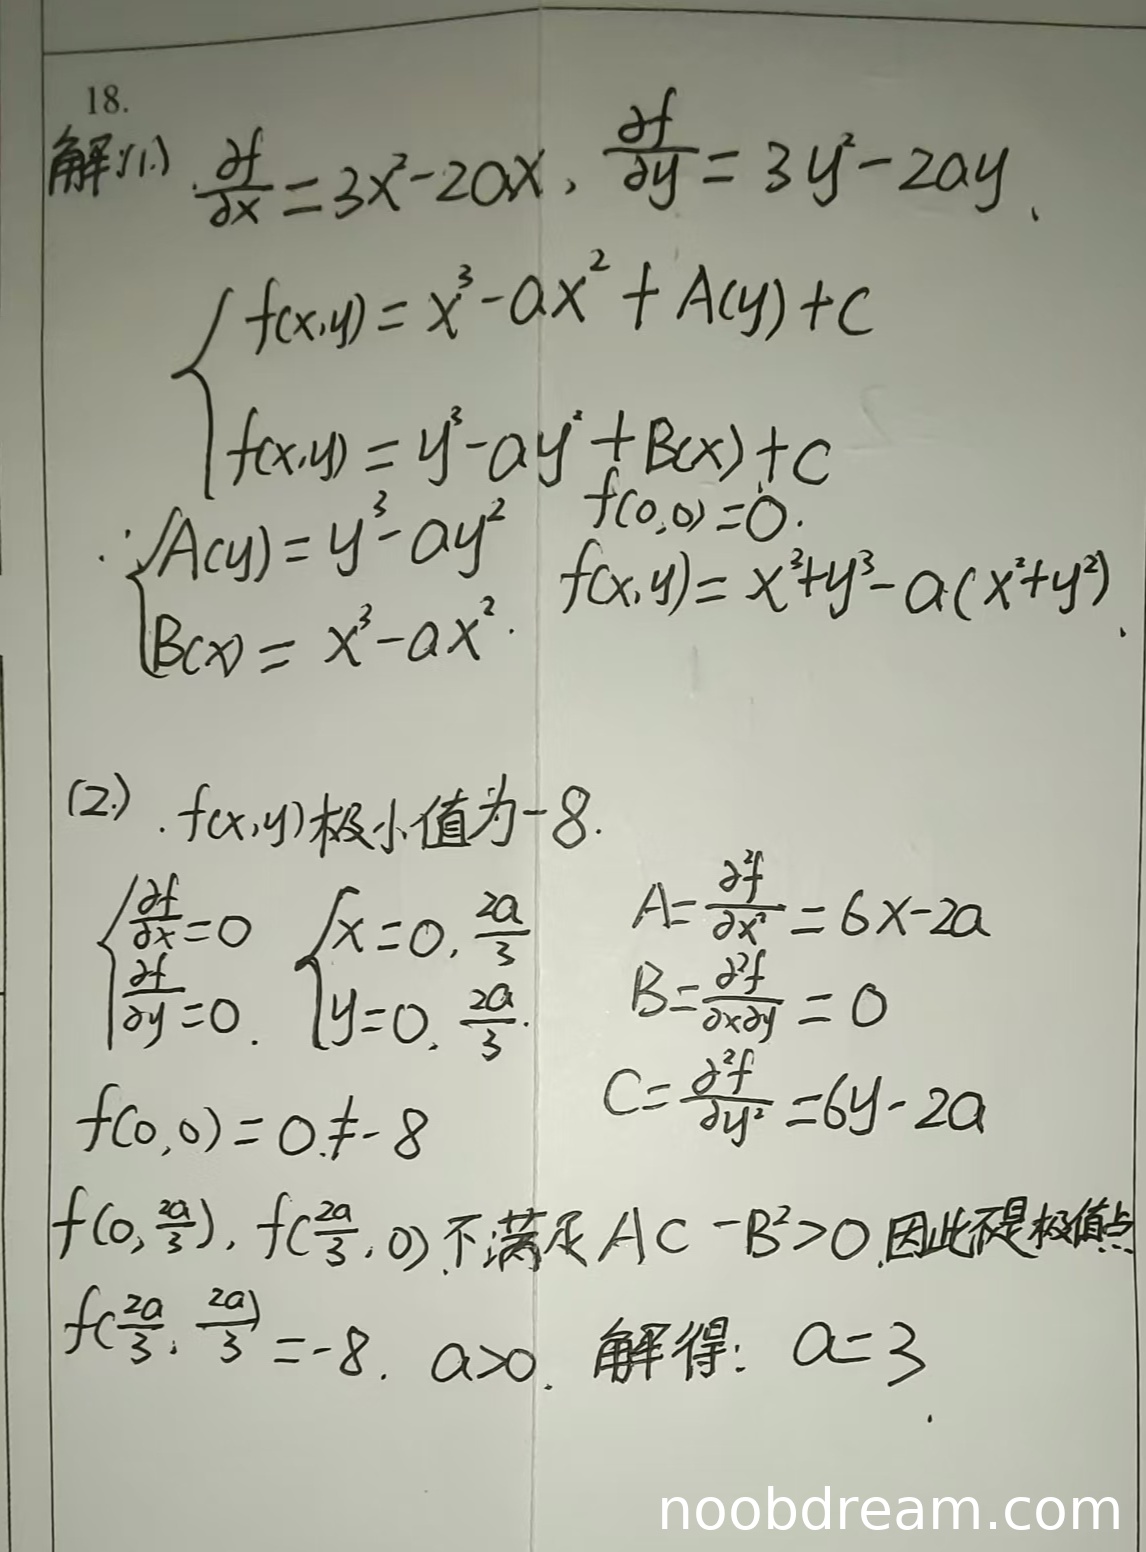 18.
解:(1.) ∂f/∂x = 3x² - 2ax, ∂f/∂y = 3y² - 2ay,
f(x,y) = x³ - ax² + A(y) + C
f(x,y) = y³ - ay² + B(x) + C
∴ A(y) = y³ - ay² f(0,0) = 0.
B(x) = x³ - ax². f(x,y) = x³ + y³ - a(x² + y²).
(2.) f(x,y)极小值为-8.
∂f/∂x = 0 x = 0, 2a/3 A = ∂²f/∂x² = 6x - 2a
∂f/∂y = 0. y = 0, 2a/3. B = ∂²f/∂x∂y = 0
f(0,0) = 0 ≠ -8 C = ∂²f/∂y² = 6y - 2a
f(0, 2a/3), f(2a/3, 0)不满足 AC - B² > 0 因此不是极值点
f(2a/3, 2a/3) = -8. a > 0. 解得: a = 3.
noobdream.com